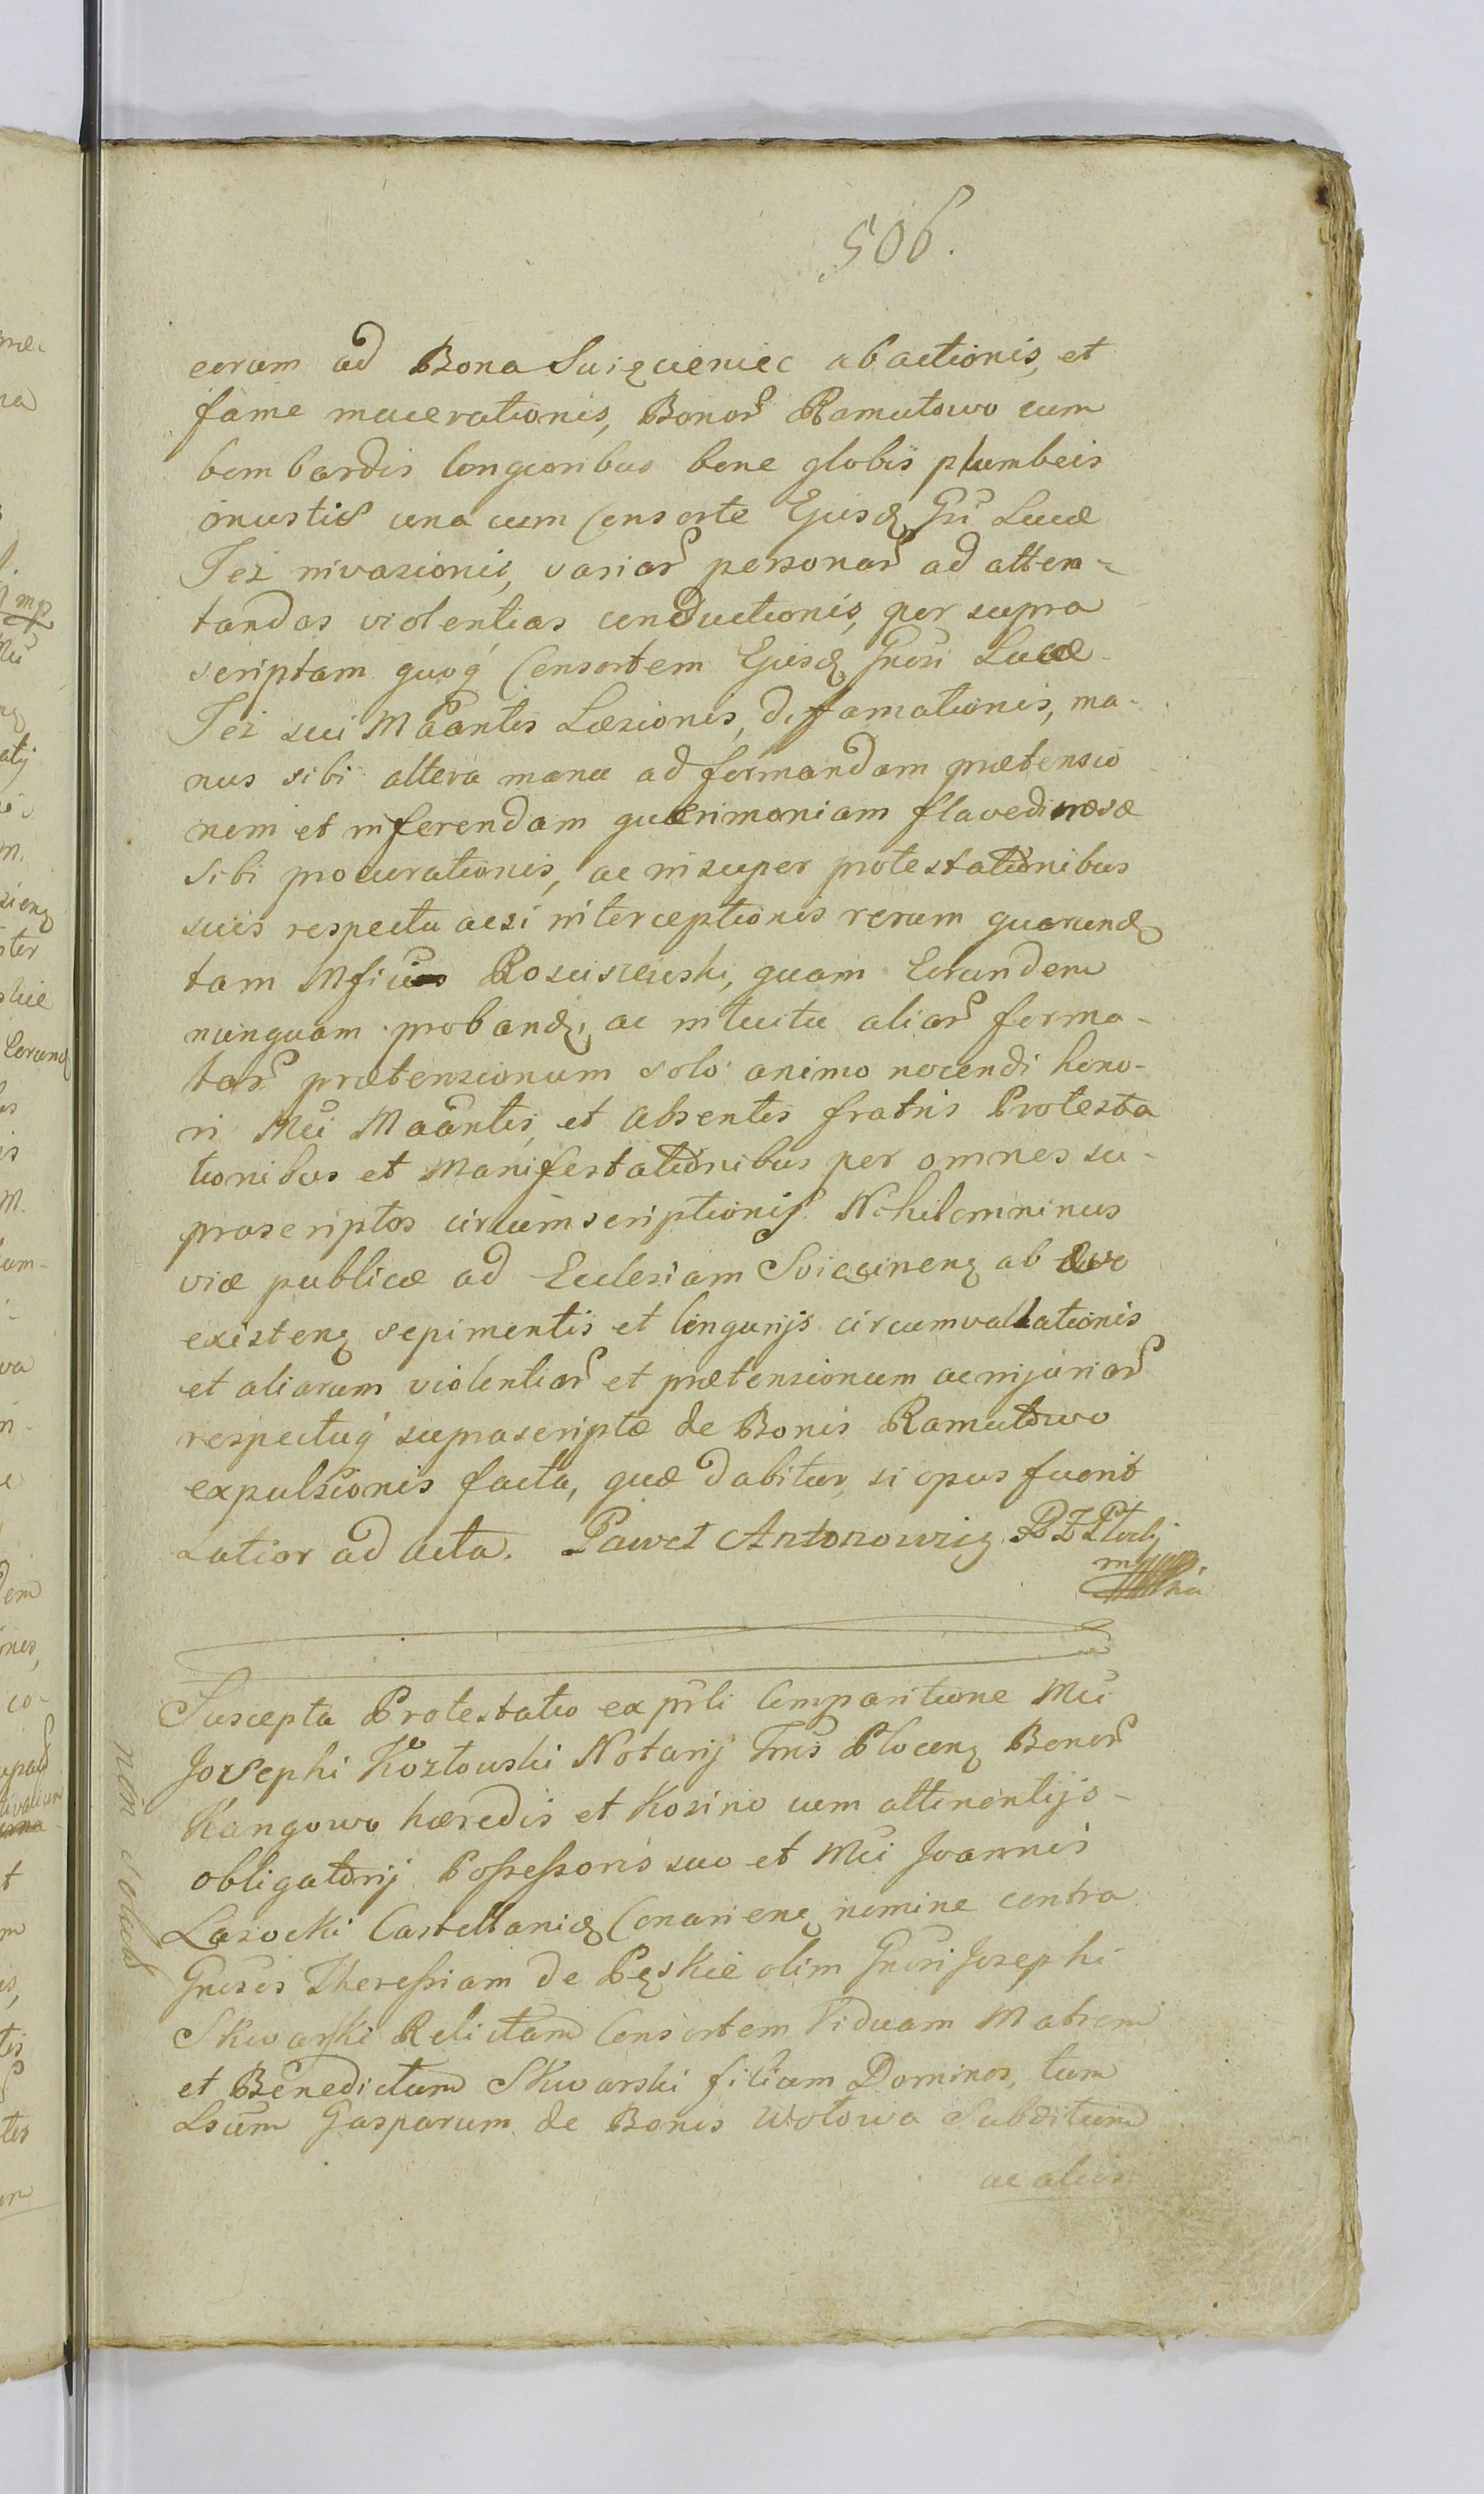 506.
eorum ad Bona Suięcieniec abactionis, et
fame macerationis, Bonor Ramutowo cum
bombardis longioribus bene globis plumbeis
onustis una cum Consorte Ejusd Gsi Lucæ
Jeż invasionis, variar personar ad atten-
tandas violentias conductionis, per supra
scriptam quoq Consortem Ejusd Gnosi Lucæ
Jeż sui Maantis Læsionis, diffamationis, ma-
nus sibi altera manu ad formandam prætensio
nem et inferendam quærimoniam flavedinosæ
sibi procurationis, ac insuper protestationibus
suis respectu acsi interceptionis rerum quarund
tam Mficus Rosciszewski, quam Eorundem
nunquam proband, ac intuitu aliar forma-
tar prætensionum solo animo nocendi hono-
ri Mci Maantis, et absentis fratris Protesta
tionibus et Manifestationibus per omnes su-
prascriptos circumscriptionis. Nihilominus
viæ publicæ ad Ecclesiam Soięcinen ab ævo
existen sepimentis et longurijs circumvallationis
et aliarum violentiar et prætensionum ac injuriar
respectuq suprascriptæ de Bonis Ramutowo
expulsionis facta, quæ dabitur, si opus fuerit
Latior ad acta. Paweł Antonowicz
mppria
Suscepta Protestatio ex prli Comparitione Mci
Josephi Kozłowski Notarij Trris Plocen Bonor
Kangowo hæredis et Kosino cum attinentijs
obligatorij Possessoris suo et Mci Joannis
Lasocki Castellanid Conarien nomine contra
Gnosos Theressiam de Pęskie olim Gnosi Josephi
Skwarski Relictam Consortem Viduam Matrem
et Benedictum Skwarski filium Dominos, tum
Lsum Gasparum de Bonis Wołowa Subditum
ac alios
non solvit